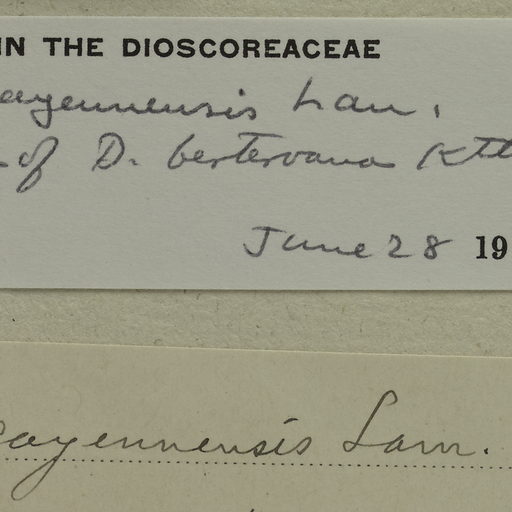 IN THE DIOSCOREACEAE
ayennensis Lam.
of D. berteroana Kth
June 28 19
cayennensis Lam.